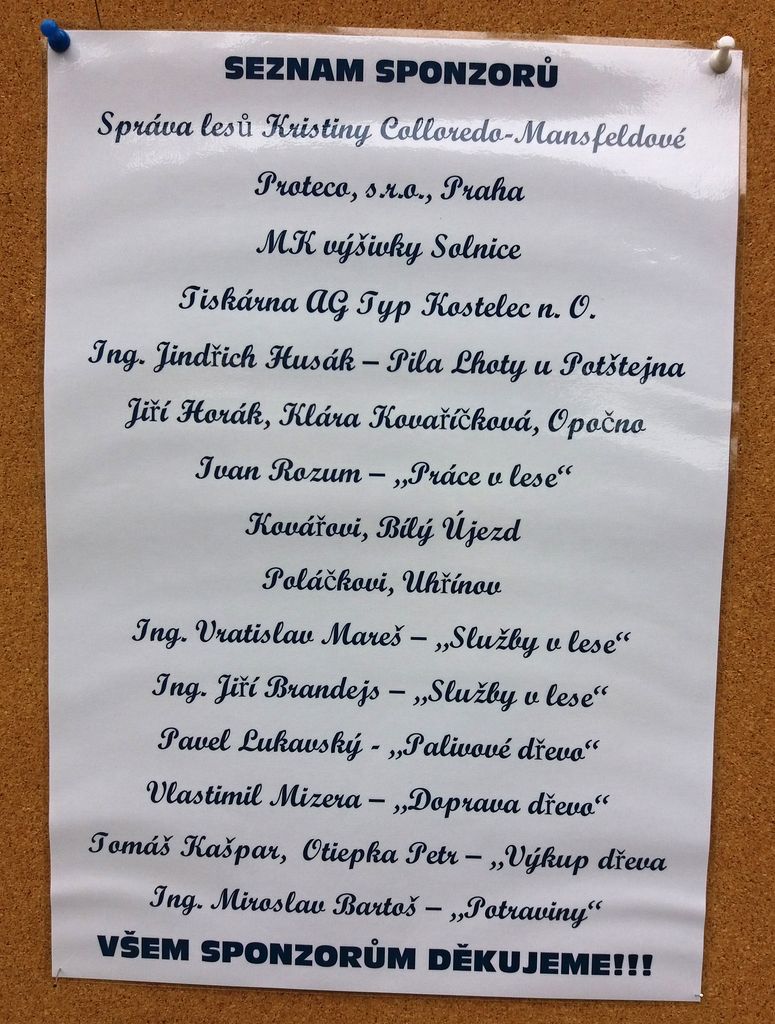 SEZNAM SPONZORŮ
Správa lesů Kristiny Colloredo-Mansfeldové
Proteco, s.r.o., Praha
MK výšivky Solnice
Tiskárna AG Typ Kostelec n. O.
Ing. Jindřich Husák – Pila Lhoty u Potštejna
Jiří Horák, Klára Kovaříčková, Opočno
Ivan Rozum – „Práce v lese“
Kovářovi, Bílý Újezd
Poláčkovi, Uhřínov
Ing. Vratislav Mareš – „Služby v lese“
Ing. Jiří Brandejs – „Služby v lese“
Pavel Lukavský - „Palivové dřevo“
Vlastimil Mizera – „Doprava dřevo“
Tomáš Kašpar, Otiepka Petr – „Výkup dřeva
Ing. Miroslav Bartoš – „Potraviny“
VŠEM SPONZORŮM DĚKUJEME!!!